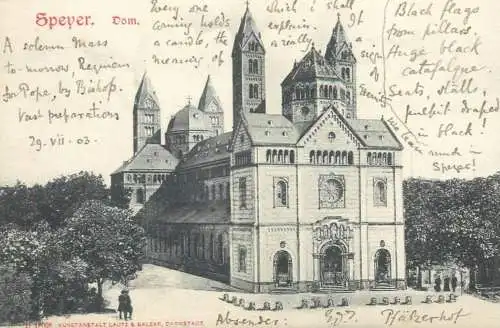 Speyer. Dom.
A solemn Mass
to-morrow Requiem
for Pope, by Bishop.
Vast preparations
29. VII. 03.
Every one
coming holds
a candle, the
meaning of
which
explain
a really
Black flags
from pillars,
Huge black
catafalque
Seats, stalls,
pulpit draped
in black!
in Speyer!
KUNSTANSTALT LAUTZ & BALZAR, DARMSTADT.
Absender:
Pfälzerhof